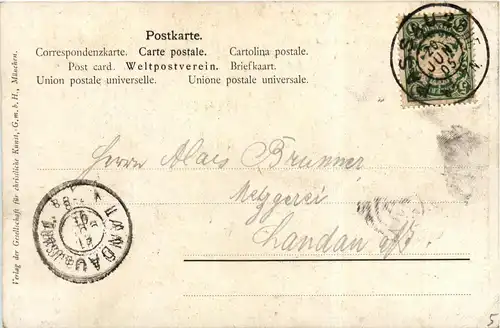 Postkarte.
Correspondenzkarte. Carte postale. Cartolina postale.
Post card. Weltpostverein. Briefkaart.
Union postale universelle. Unione postale universale.
Verlag der Gesellschaft für christliche Kunst, G. m. b. H., München.
Herrn Alois Brunner
Metzgerei
Landau a/I.
LANDAU
JUN
05
5